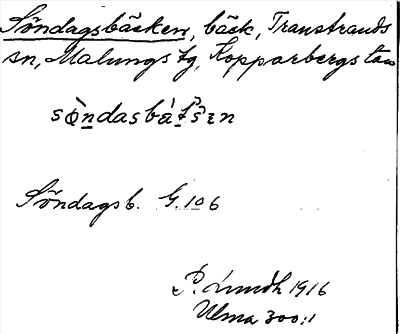 Söndagsbäcken, bäck, Transtrands
sn, Malungs tg, Kopparbergs län
Söndagsb. G. 106
P. Lundh 1916
Ulma 300:1